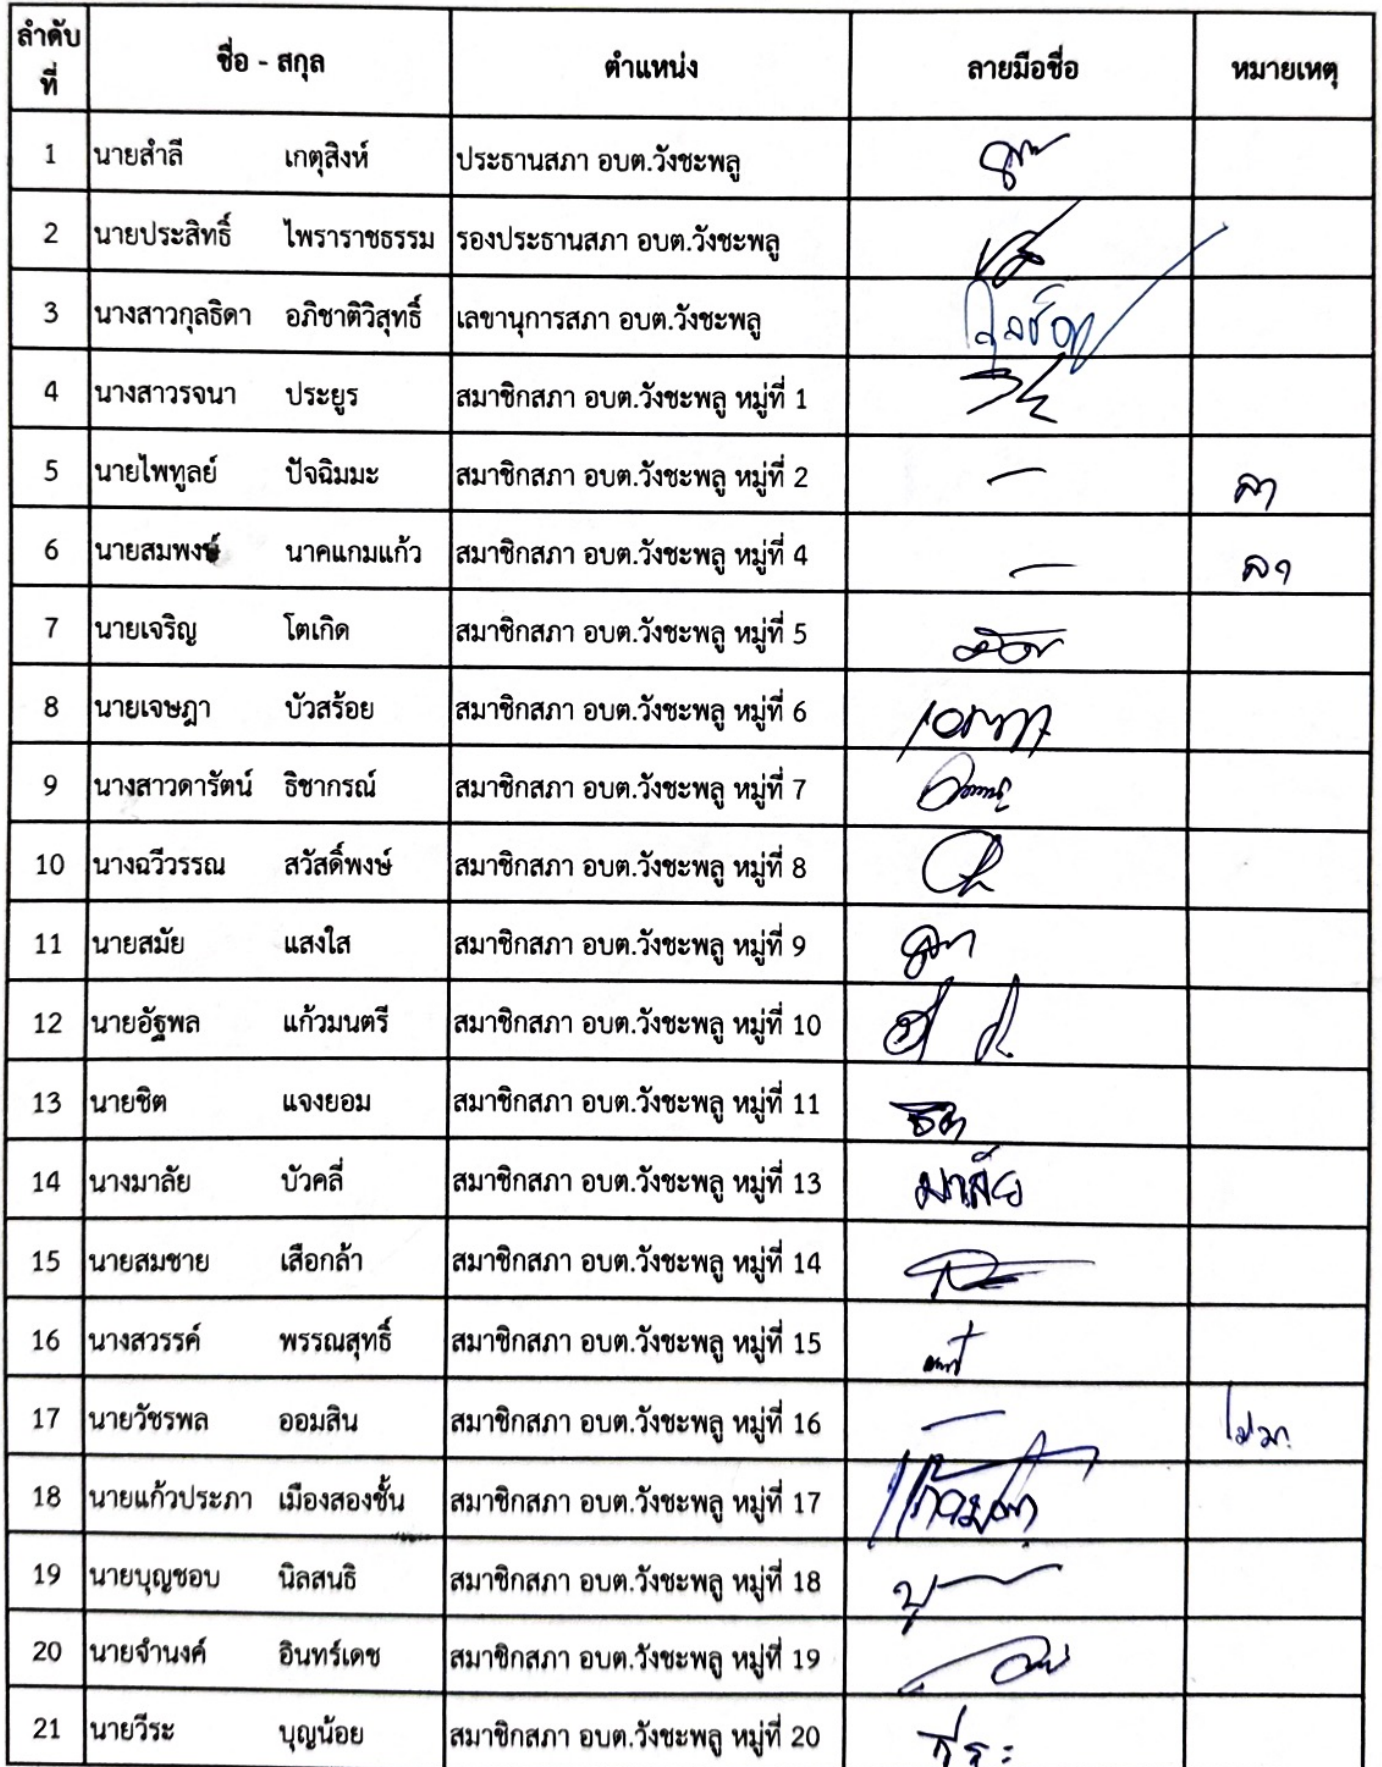 ลำดับที่ ชื่อ - สกุล ตำแหน่ง ลายมือชื่อ หมายเหตุ
1 นายสำลี เกตุสิงห์ ประธานสภา อบต.วังชะพลู
2 นายประสิทธิ์ ไพราราชธรรม รองประธานสภา อบต.วังชะพลู
3 นางสาวกุลธิดา อภิชาติวิสุทธิ์ เลขานุการสภา อบต.วังชะพลู
4 นางสาวรจนา ประยูร สมาชิกสภา อบต.วังชะพลู หมู่ที่ 1
5 นายไพทูลย์ ปัจฉิมมะ สมาชิกสภา อบต.วังชะพลู หมู่ที่ 2 - ลา
6 นายสมพงษ์ นาคแกมแก้ว สมาชิกสภา อบต.วังชะพลู หมู่ที่ 4 - ลา
7 นายเจริญ โตเกิด สมาชิกสภา อบต.วังชะพลู หมู่ที่ 5
8 นายเจษฎา บัวสร้อย สมาชิกสภา อบต.วังชะพลู หมู่ที่ 6
9 นางสาวดารัตน์ ธิชากรณ์ สมาชิกสภา อบต.วังชะพลู หมู่ที่ 7
10 นางฉวีวรรณ สวัสดิ์พงษ์ สมาชิกสภา อบต.วังชะพลู หมู่ที่ 8
11 นายสมัย แสงใส สมาชิกสภา อบต.วังชะพลู หมู่ที่ 9
12 นายอัฐพล แก้วมนตรี สมาชิกสภา อบต.วังชะพลู หมู่ที่ 10
13 นายชิต แจงยอม สมาชิกสภา อบต.วังชะพลู หมู่ที่ 11
14 นางมาลัย บัวคลี่ สมาชิกสภา อบต.วังชะพลู หมู่ที่ 13 มาลัย
15 นายสมชาย เสือกล้า สมาชิกสภา อบต.วังชะพลู หมู่ที่ 14
16 นางสวรรค์ พรรณสุทธิ์ สมาชิกสภา อบต.วังชะพลู หมู่ที่ 15
17 นายวัชรพล ออมสิน สมาชิกสภา อบต.วังชะพลู หมู่ที่ 16 - ไม่มา
18 นายแก้วประภา เมืองสองชั้น สมาชิกสภา อบต.วังชะพลู หมู่ที่ 17
19 นายบุญชอบ นิลสนธิ สมาชิกสภา อบต.วังชะพลู หมู่ที่ 18
20 นายจำนงค์ อินทร์เดช สมาชิกสภา อบต.วังชะพลู หมู่ที่ 19
21 นายวีระ บุญน้อย สมาชิกสภา อบต.วังชะพลู หมู่ที่ 20 วีระ